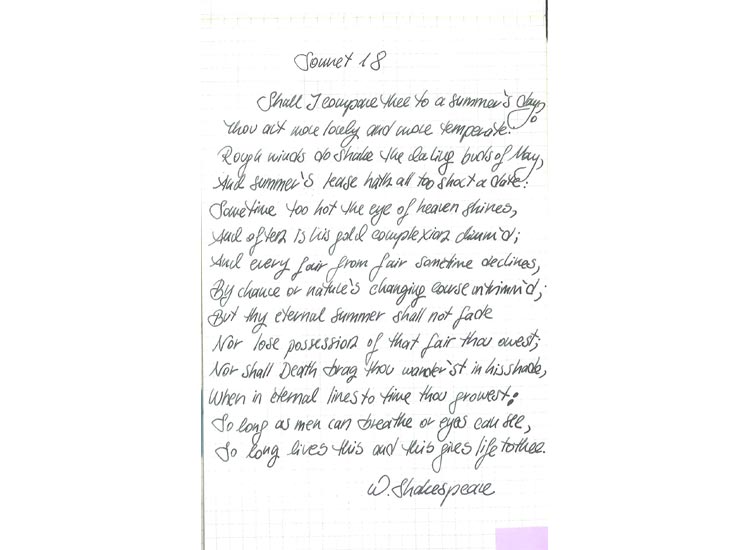 Sonnet 18
Shall I compare thee to a summer's day,
Thou art more lovely and more temperate:
Rough winds do shake the darling buds of May,
And summer's lease hath all too short a date:
Sometime too hot the eye of heaven shines,
And often is his gold complexion dimm'd;
And every fair from fair sometime declines,
By chance or nature's changing course untrimm'd;
But thy eternal summer shall not fade
Nor lose possession of that fair thou owest;
Nor shall Death brag thou wander'st in his shade,
When in eternal lines to time thou growest:
So long as men can breathe or eyes can see,
So long lives this and this gives life to thee.
W. Shakespeare